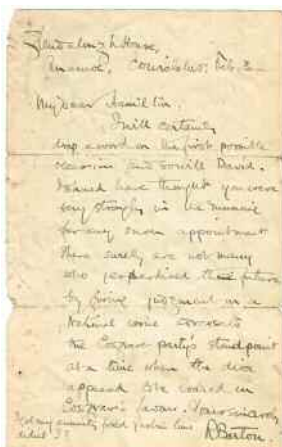 Glendalough House,
Annamoe, Co. Wicklow. Feb. 2
My dear Hamilton,
I will certainly
drop a word on the first possible
occasion and so will David.
I should have thought you were
very strongly in the running
for any such appointment
there surely are not many
who jeopardised their future
by giving judgment in a
National
the Cosgrave party's standpoint
at a time when the dice
appeared to be loaded in
Cosgrave's favour. Yours sincerely
R Barton.